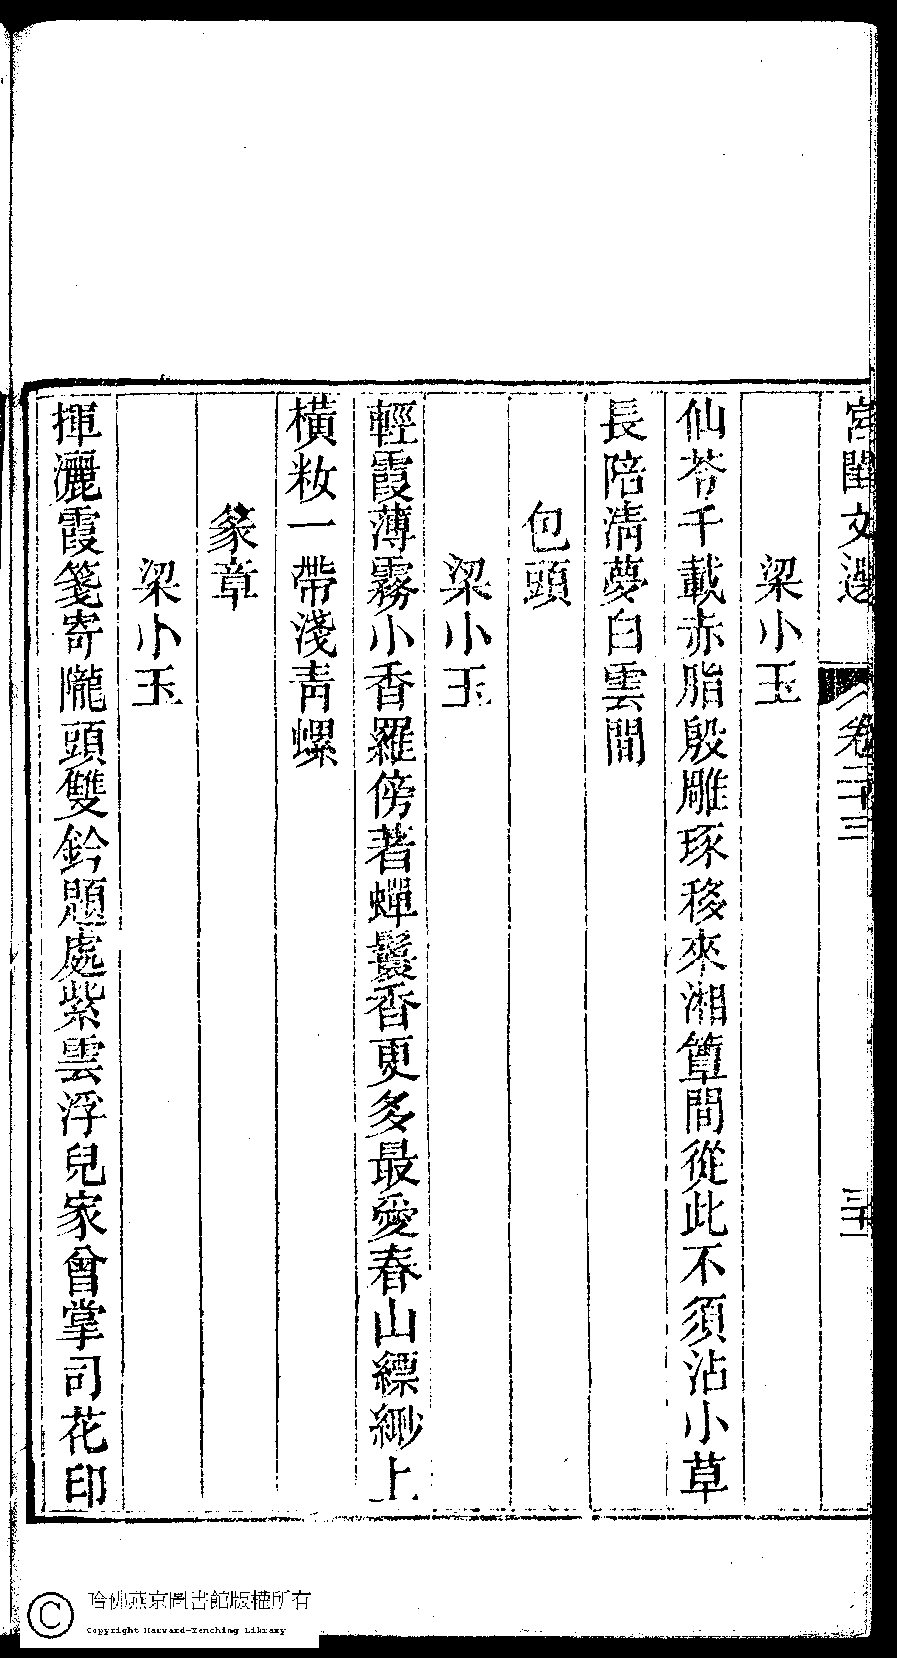 宮閨文選 卷二十三 三十一
梁小玉
仙苓千載赤脂殷雕琢移來湘簟間從此不須沾小草
長陪清夢白雲間
包頭
梁小玉
輕霞薄霧小香羅傍著蟬鬟香更多最愛春山縹緲上
橫妝一帶淺青螺
篆章
梁小玉
揮灑霞箋寄隴頭雙鈐題處紫雲浮兒家曾掌司花印
哈佛燕京圖書館版權所有
Copyright Harvard-Yenching Library